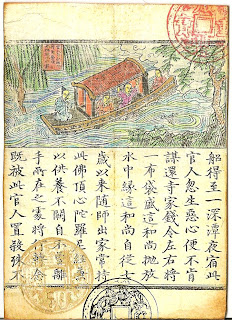 船得至一深潭夜宿此
官人忽生惡心便不肯
謀還寺家錢令左右將
一布袋盛這和尚拋放
水中緣這和尚自從七
歲以來随師出家常持
此佛頂心陀羅尼經兼
以供養不闕自不曾離
手所在之處將念
既被此官人置殁不